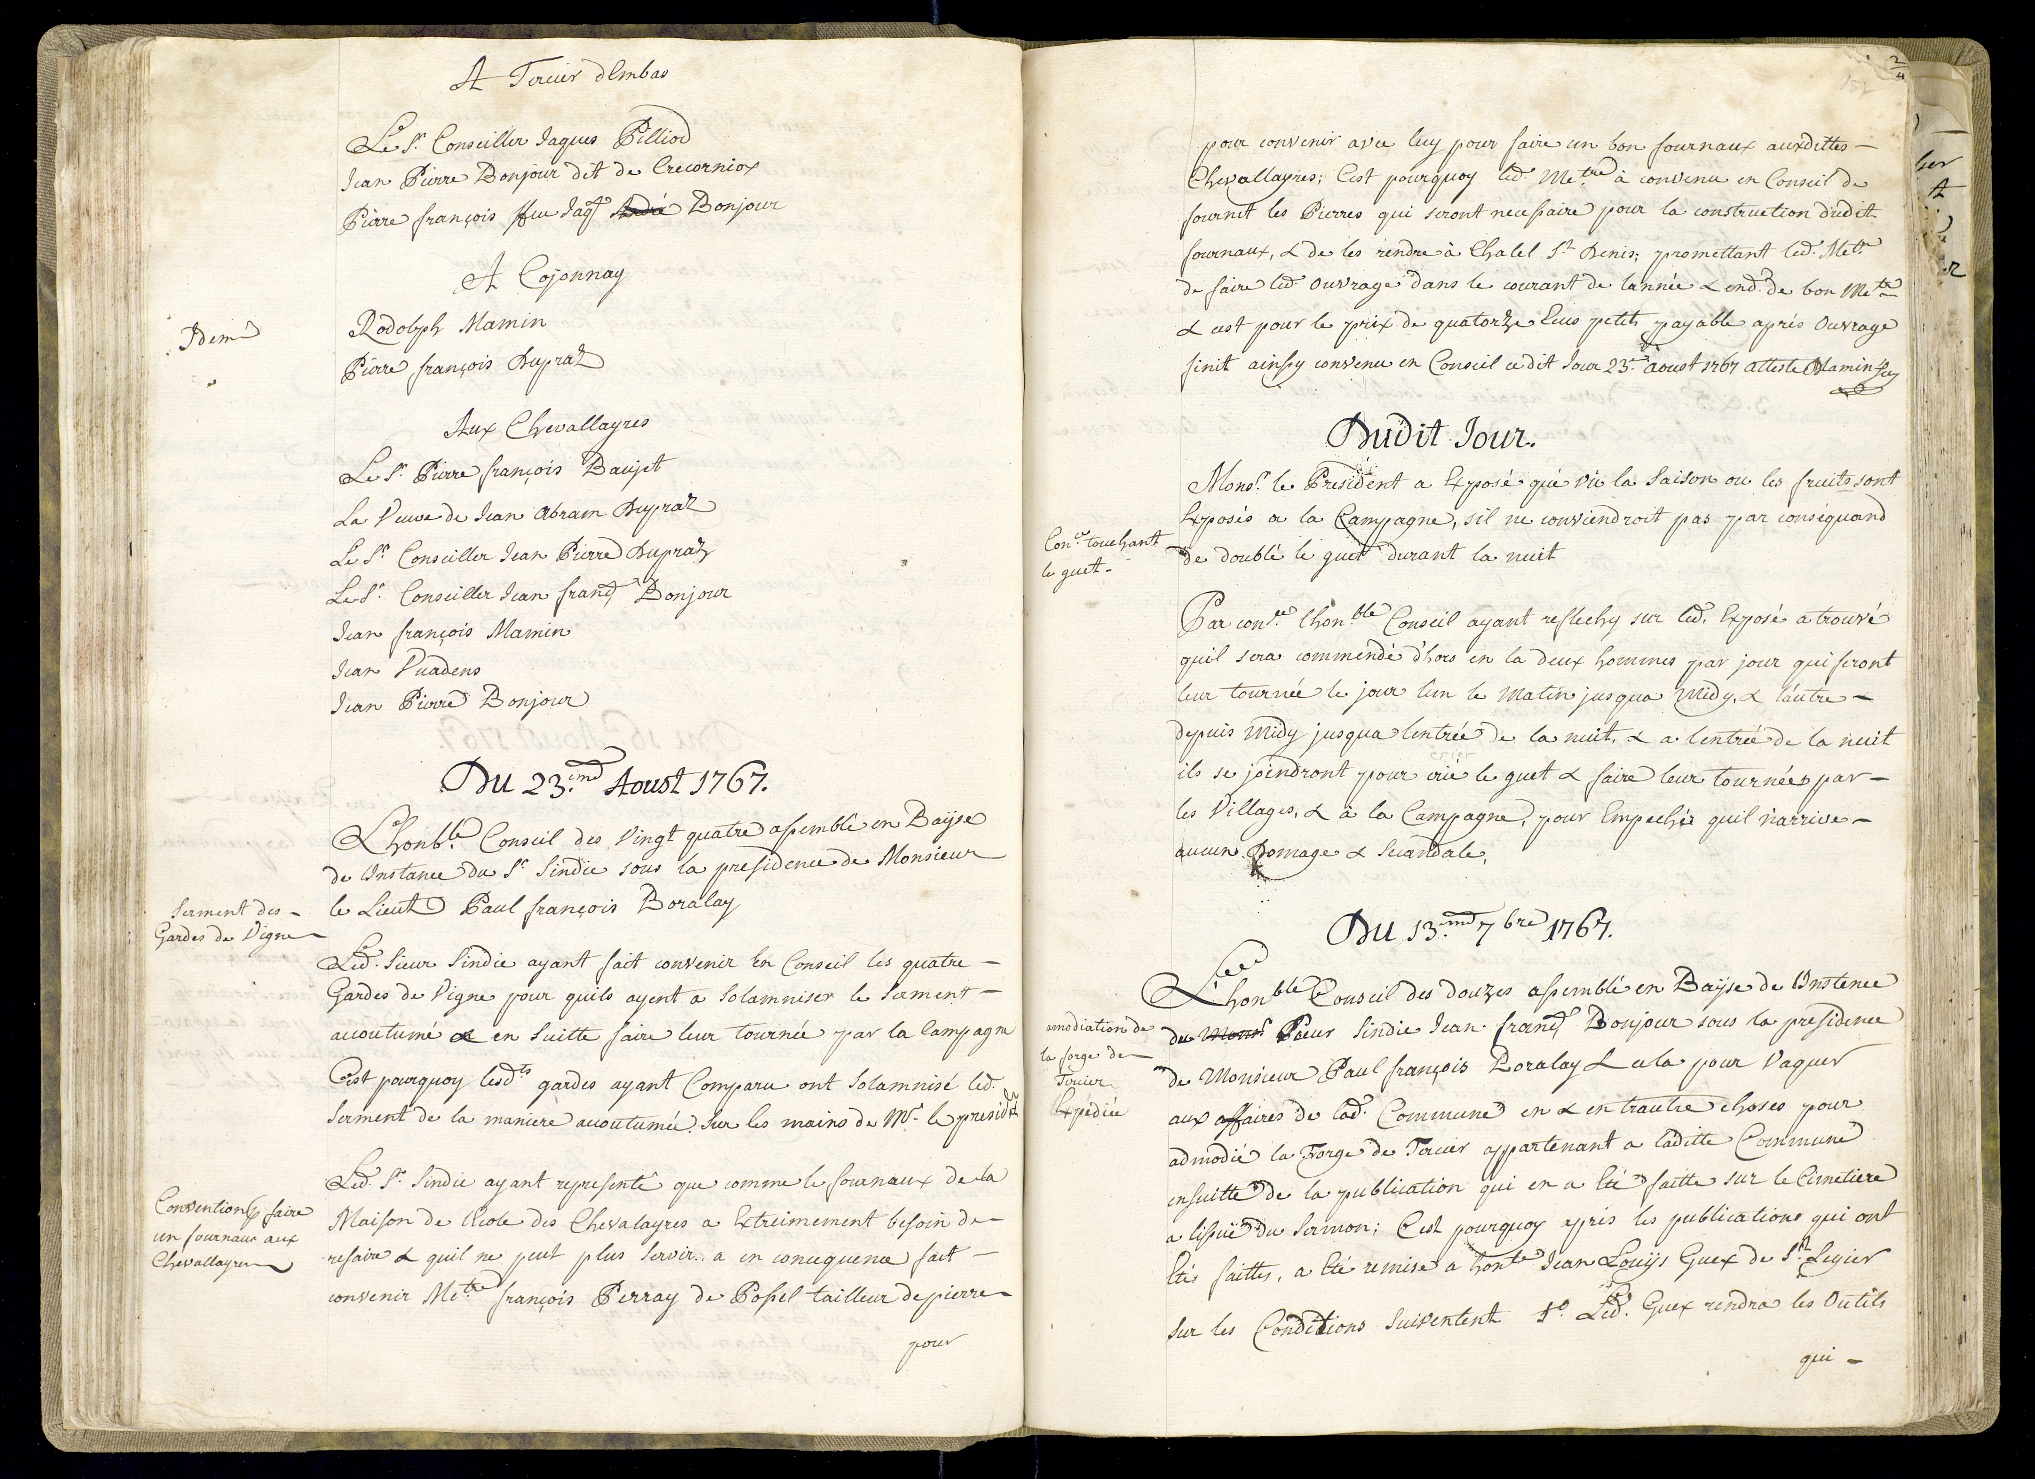 A Tercier dEmbas
Le Sr. Conseiller Jaques Pilliod
Jean Pierre Bonjour dit de Crecorniox
Pierre françois ffeu Jaqs André Bonjour
A Cojonnay
Idem
Rodolph Mamin
Pierre françois Dupraz
Aux Chevallayres
Le Sr. Pierre françois Baujet
La Veuve de Jean Abram Dupraz
Le Sr. Conseiller Jean Pierre Dupraz
Le Sr. Conseiller Jean franç. Bonjour
Jean françois Mamin
Jean Vuadens
Jean Pierre Bonjour
Du 23.eme Aoust 1767.
Lhonble. Conseil des Vingt quatre assemblé en Bayse
de Instance du Sr. Sindic sous la presidence de Monsieur
le Lieut Paul françois Doralay
Serment des
Gardes de Vigne
Led. Sieur Sindic ayant fait convenir En Conseil les quatre
Gardes de Vigne pour quils ayent a Solamniser le Serment
accoutumé & en Suitte faire leur tournée par la Campagne
Cest pourquoy lesdts gardes ayant Comparu ont Solamnisé led.
Serment de la maniere accoutumée. Sur les mains de Mr. le presidt
Convention p faire
un fournaux aux
Chevallayres
Led. Sr. Sindic ayant representé que comme le fournaux de la
Maison de lEcole des Chevalayres a Extreimement besoin de
refaire & quil ne peut plus Servir.. a en consequence fait
convenir Metre françois Perray de Possel tailleur de pierre
pour
2/4
151
pour convenir avec luy pour faire un bon fournaux auxdittes
Chevallayres; Cest pourquoy led. Metre à convenu en Conseil de
fournit les Pierres qui seront necessaire pour la construction dudit
fournaux, & de les rendre à Chalel St. Denis; promettant led. Metre
de faire led. Ouvrage dans le courant de lannée & end. de bon Metre
& cest pour le prix de quatorze Ecus petits payable aprés Ouvrage
finit ainsy convenu en Conseil cedit Jour 23.e aoust 1767 atteste Mamin Scy
Dudit Jour.
Monsr. le President a Exposé que vû la Saison ou les fruits sont
Exposés a la Campagne, sil ne conviendroit pas par conséquand
de doublé le guet durant la nuit
Con.ce touchant
le guet.
Par con.ce lhon.ble Conseil ayant reflechy sur led. Exposé a trouvé
quil sera commendé d'hors en la deux hommes par jour qui feront
leur tournée le jour lun le Matin jusqua Midy, & láutre
depuis Midy jusqua lentrée de la nuit, & a lentrée de la nuit
ils se joindront pour crié le guet & faire leur tournées par
les Villages, & à la Campagne, pour Empechér quil n'arrive
aucun Domage & Scandale,
Du 13.eme 7bre 1767.
Lhonble Conseil des douzes assemblé en Bayse de Instence
du Monsr Sieur Sindic Jean franç. Bonjour sous la presidence
de Monsieur Paul françois Doralay & cela pour Vaquer
amodiation de
la forge de
Tercier
Expédiée
aux affaires de lad. Commune en & en trautre choses pour
admodié la Forge de Tercier appartenant a laditte Commune
ensuitte de la publication qui en a Eté faitte sur le Cimetiere
a lissuë du Sermon; Cest pourquoy aprés les publications qui ont
Etés faittes, a Eté remise a honble Jean Louijs Guex de St. Legier
Sur les Conditions Suiventent 1o. Led. Guex rendra les Outils
qui